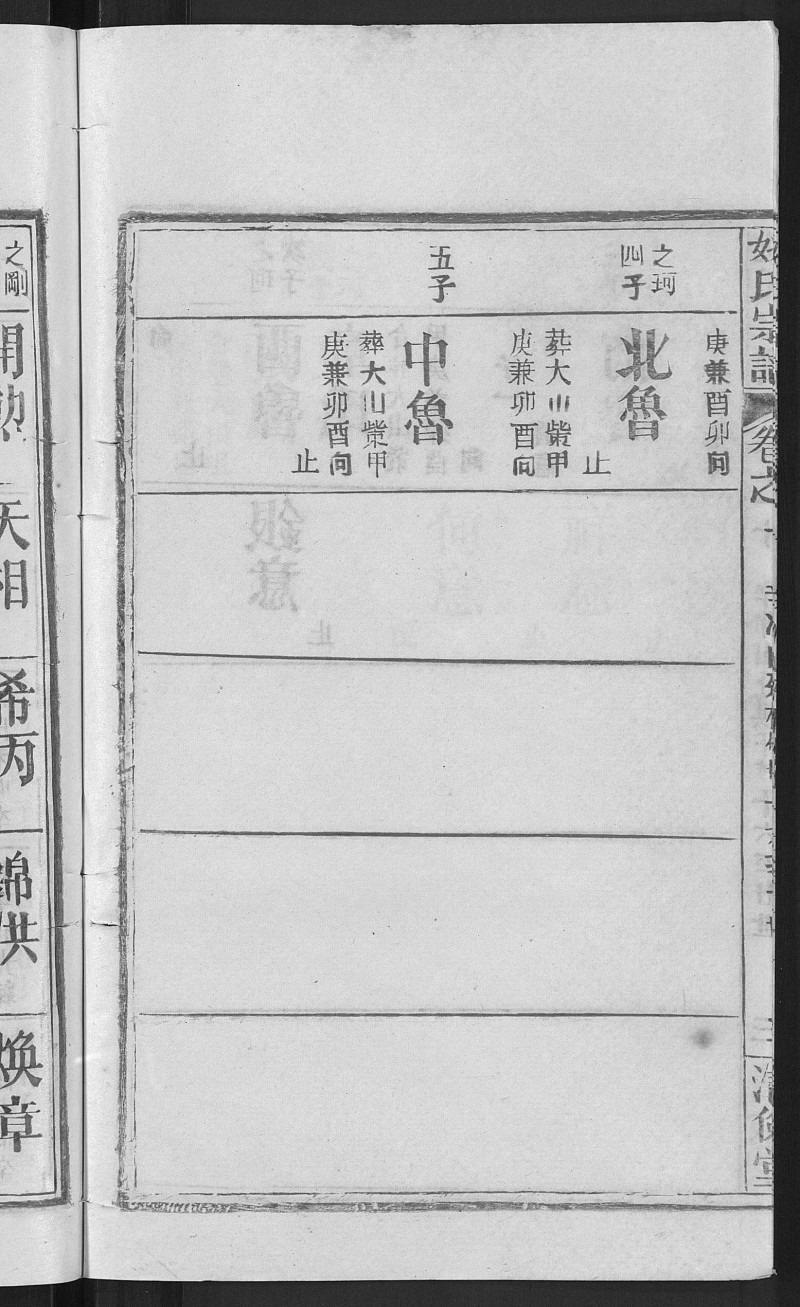 氏宗譜
卷之
庚兼酉卯向
之珂
四子
北魯
止
葬大山塋甲
庚兼卯酉向
五子
中魯
葬大山塋甲
庚兼卯酉向
止
之剛
天相
希丙
錦洪
煥章